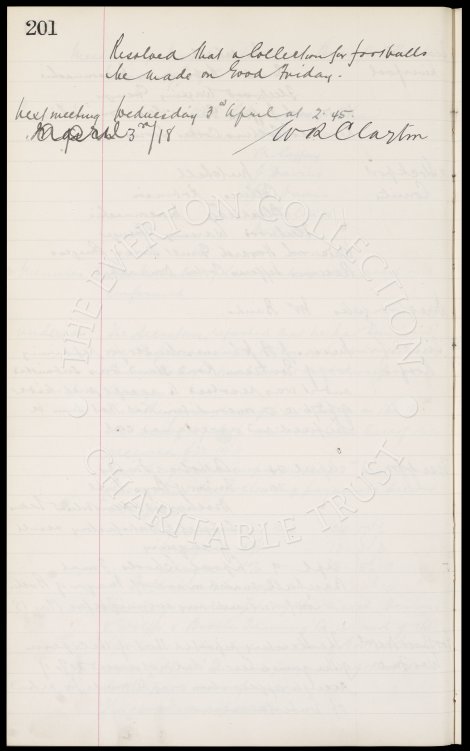 201
Resolved that a Collection for footballs
be made on Good Friday.
Next meeting Wednesday 3rd April at 2.45.
April 3rd/18 W R Clayton
THE EVERTON COLLECTION
CHARITABLE TRUST